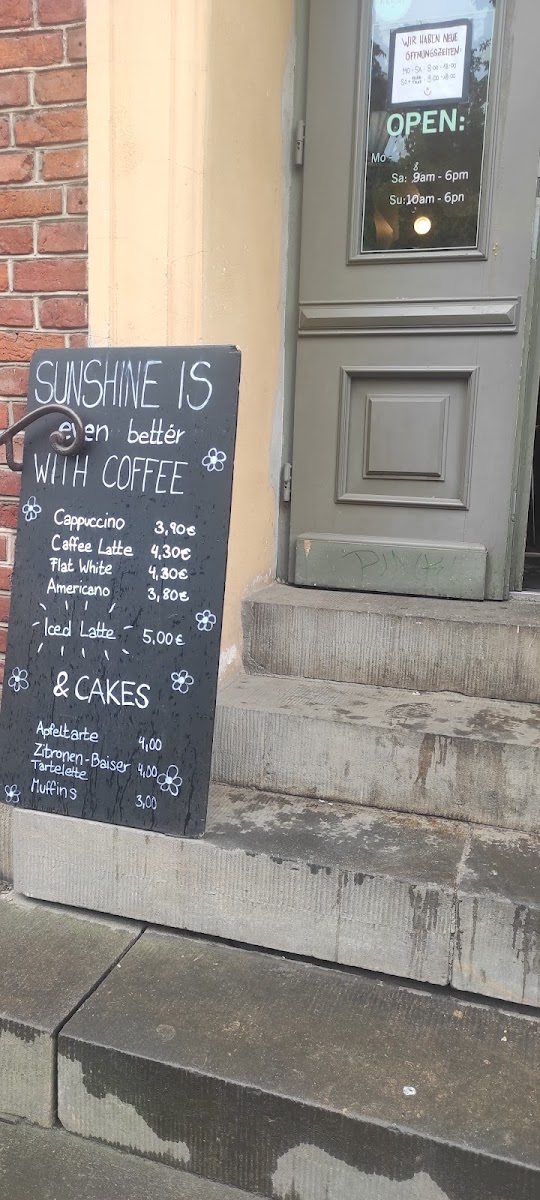 WIR HABEN NEUE
ÖFFNUNGSZEITEN:
OPEN:
Mo -
Sa: 9am - 6pm
Su: 10am - 6pm
SUNSHINE IS
even better
WITH COFFEE
Cappuccino 3,90€
Caffee Latte 4,30€
Flat White 4,30€
Americano 3,80€
Iced Latte 5,00€
& CAKES
Apfeltarte 4,00
Zitronen-Baiser 4,00
Tartelette
Muffins 3,00